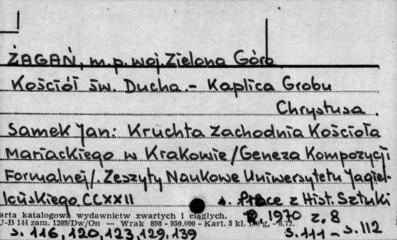 ŻAGAŃ, m.p. woj. Zielona Góra
Kościół św. Ducha. - Kaplica Grobu
Chrystusa.
Samek Jan: Kruchta Zachodnia Kościoła
Mariackiego w Krakowie /Geneza Kompozycji
Formalnej/. Zeszyty Naukowe Uniwersytetu Jagiel-
lońskiego CCXXII s. Prace z Hist. Sztuki
arta katalogowa wydawnictw zwartych i ciągłych.
U-B 144 zam. 1209/Dw/On — Wrak 898 - 950.000 - Kart. 5 kl. g, -8.72.
1970 z. 8
s. 116, 120, 123, 129, 139 s. 111 - s. 112